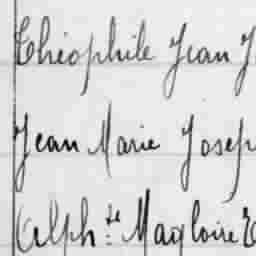 Théophile Jean J
Jean Marie Josep
Alph.te Magloire E